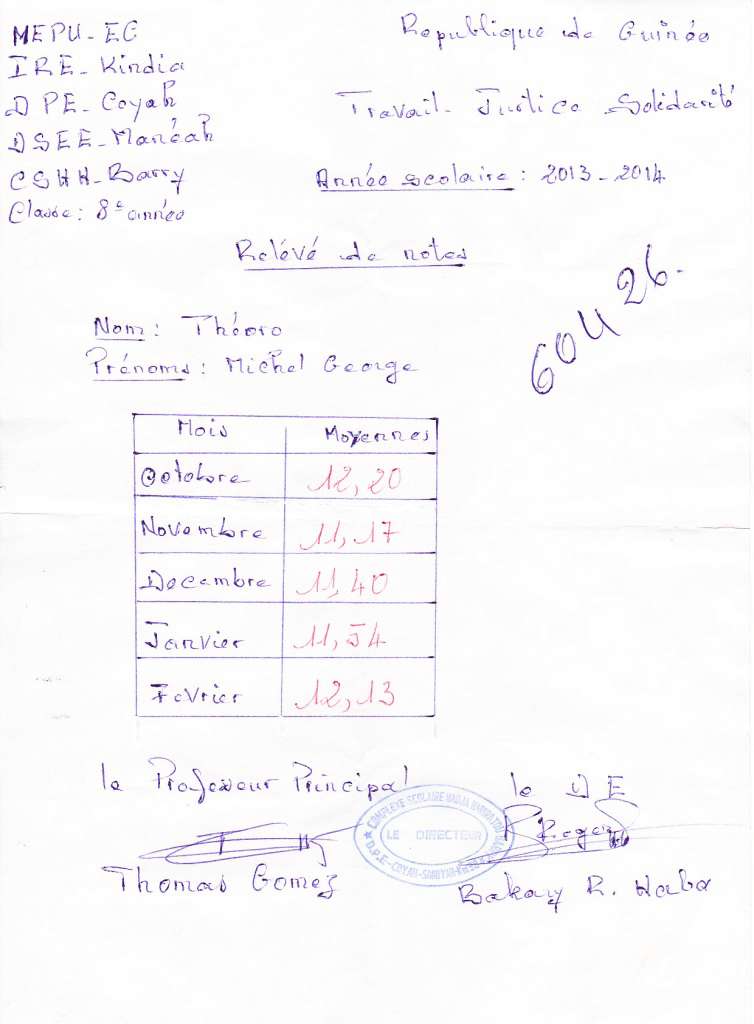 MEPU-EG
République de Guinée
IRE-Kindia
DPE-Coyah
Travail-Justice-Solidarité
DSEE-Manéah
CSHH-Barry
Année scolaire : 2013-2014
Classe : 8e année
Rélévé de notes
604 26.
Nom : Théoro
Prénoms : Michel George
Mois Moyennes
Octobre 12,20
Novembre 11,17
Decembre 11,40
Janvier 11,54
Fevrier 12,13
le Professeur Principal
le DE
COMPLEXE SCOLAIRE HADJA
LE DIRECTEUR
D.P.E-COYAH
Thomas Gomez
Bakary R. Haba